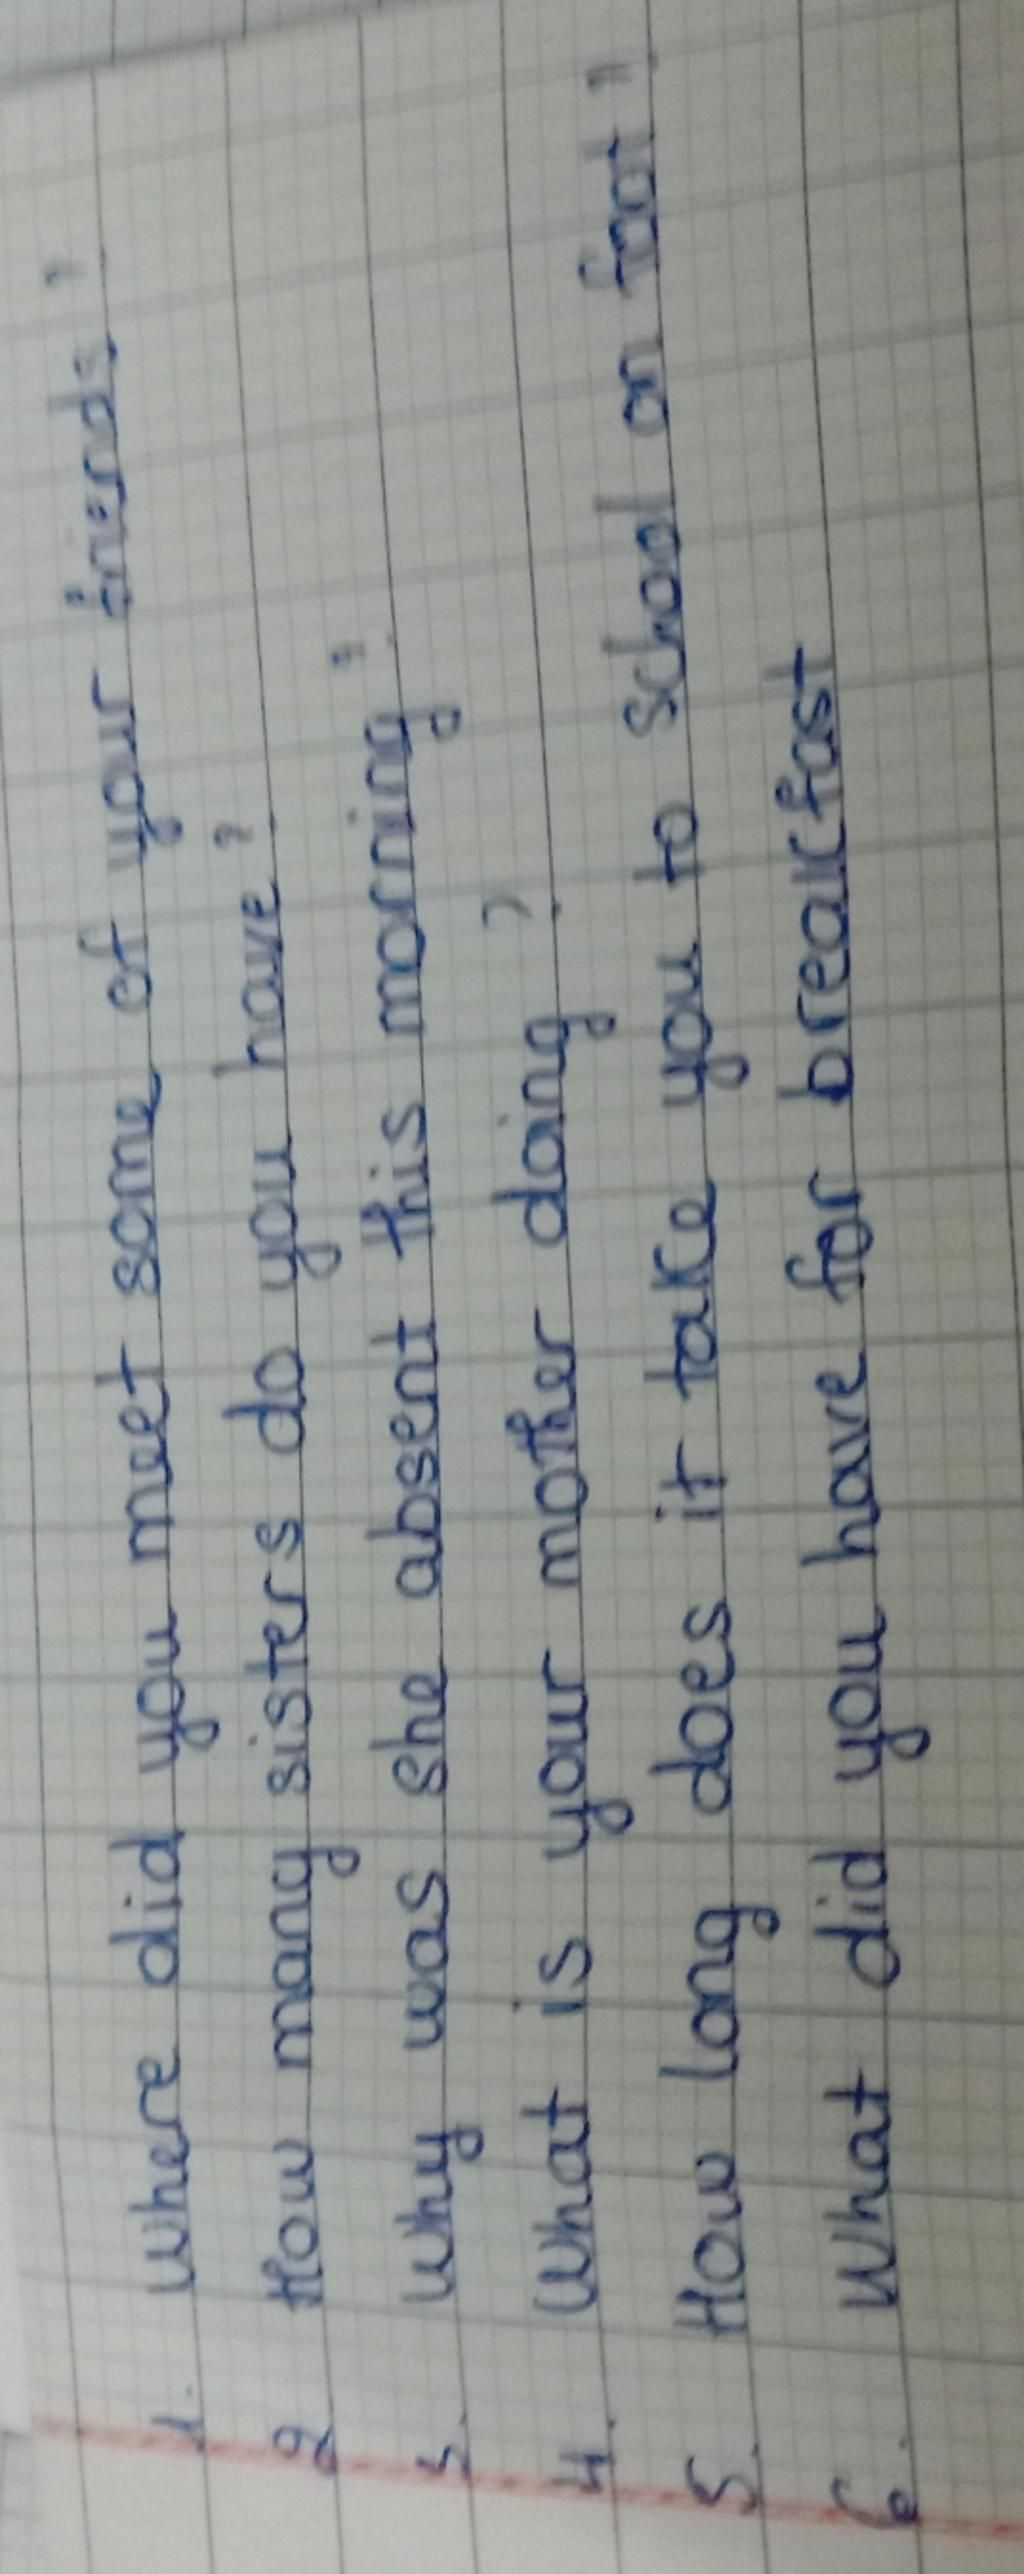 1. Where did you meet some of your friends ?
2 How many sisters do you have ?
3. Why was she absent this morning ?
4. What is your mother doing ?
5. How long does it take you to school on foot ?
6. What did you have for breakfast